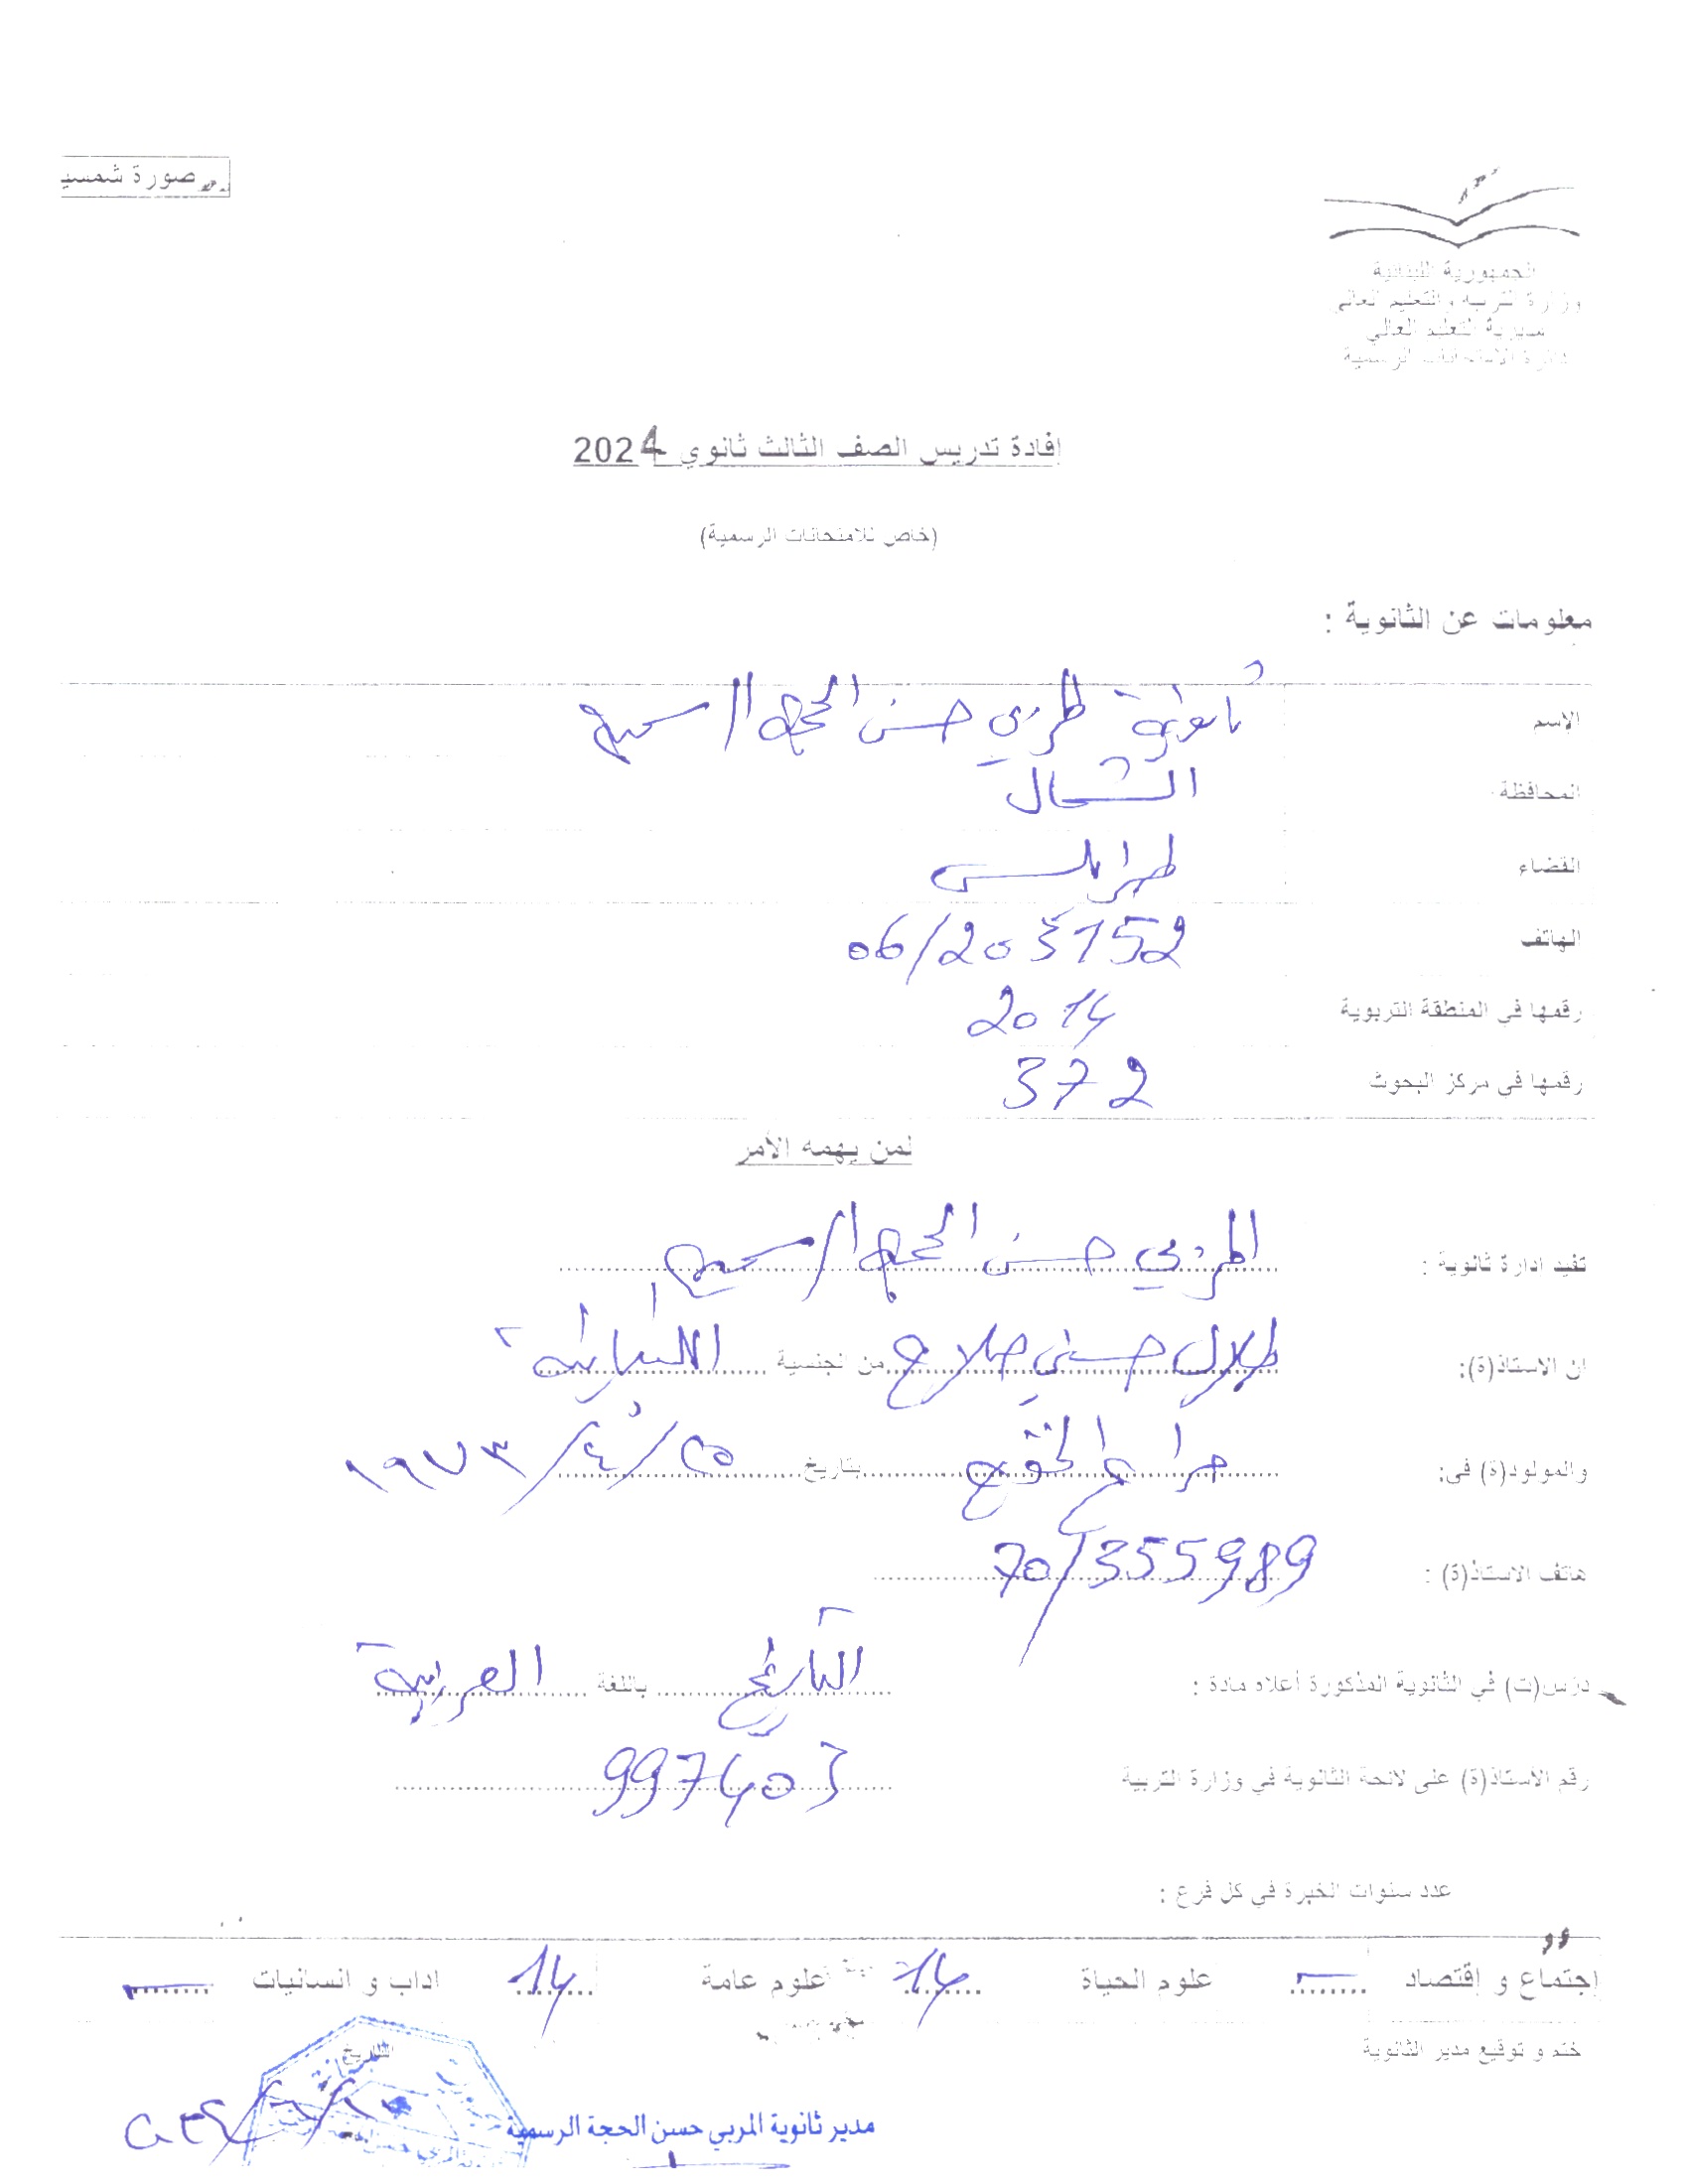 صورة شمسية
الجمهورية اللبنانية
وزارة التربية والتعليم العالي
مديرية التعليم العالي
دائرة الامتحانات الرسمية
إفادة تدريس الصف الثالث ثانوي - 2024
(خاص للامتحانات الرسمية)
معلومات عن الثانوية :
الإسم ثانوية المربي حسن الحجة الرسمية
المحافظة الشمال
القضاء طرابلس
الهاتف 06/203152
رقمها في المنطقة التربوية 2014
رقمها في مركز البحوث 372
لمن يهمه الأمر
تفيد ادارة ثانوية : المربي حسن الحجة الرسمية
ان الاستاذ(ة): طلال حسني صلاح من الجنسية اللبنانية
والمولود(ة) في: بتاريخ ٢٥/٤/١٩٧٣
هاتف الاستاذ(ة) : 70/355989
درّس(ت) في الثانوية المذكورة أعلاه مادة : التاريخ باللغة العربية
رقم الاستاذ(ة) على لائحة الثانوية في وزارة التربية 997403
عدد سنوات الخبرة في كل فرع :
إجتماع و إقتصاد علوم الحياة 14 علوم عامة 14 اداب و انسانيات
ختم و توقيع مدير الثانوية التاريخ
مدير ثانوية المربي حسن الحجة الرسمية